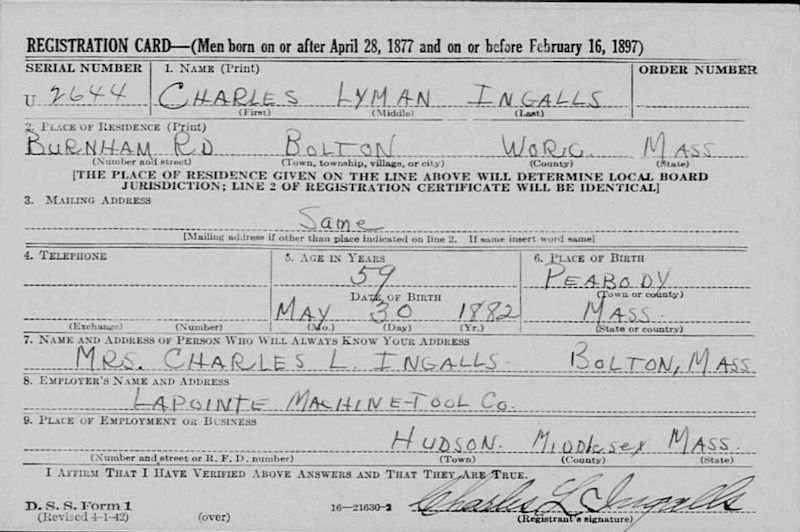 REGISTRATION CARD—(Men born on or after April 28, 1877 and on or before February 16, 1897)
SERIAL NUMBER 1. NAME (Print) ORDER NUMBER
U 2644 CHARLES LYMAN INGALLS
(First) (Middle) (Last)
2. PLACE OF RESIDENCE (Print)
BURNHAM RD BOLTON WORC. MASS
(Number and street) (Town, township, village, or city) (County) (State)
[THE PLACE OF RESIDENCE GIVEN ON THE LINE ABOVE WILL DETERMINE LOCAL BOARD
JURISDICTION; LINE 2 OF REGISTRATION CERTIFICATE WILL BE IDENTICAL]
3. MAILING ADDRESS
Same
[Mailing address if other than place indicated on line 2. If same insert word same]
4. TELEPHONE 5. AGE IN YEARS 6. PLACE OF BIRTH
59 PEABODY
DATE OF BIRTH (Town or county)
MAY 30 1882 MASS.
(Exchange) (Number) (Mo.) (Day) (Yr.) (State or country)
7. NAME AND ADDRESS OF PERSON WHO WILL ALWAYS KNOW YOUR ADDRESS
MRS. CHARLES L. INGALLS- BOLTON, MASS
8. EMPLOYER'S NAME AND ADDRESS
LAPOINTE MACHINE-TOOL CO.
9. PLACE OF EMPLOYMENT OR BUSINESS
HUDSON. MIDDLESEX MASS.
(Number and street or R. F. D. number) (Town) (County) (State)
I AFFIRM THAT I HAVE VERIFIED ABOVE ANSWERS AND THAT THEY ARE TRUE.
D. S. S. Form 1 Charles L. Ingalls
(Revised 4-1-42) (over) 16—21630-2 (Registrant's signature)